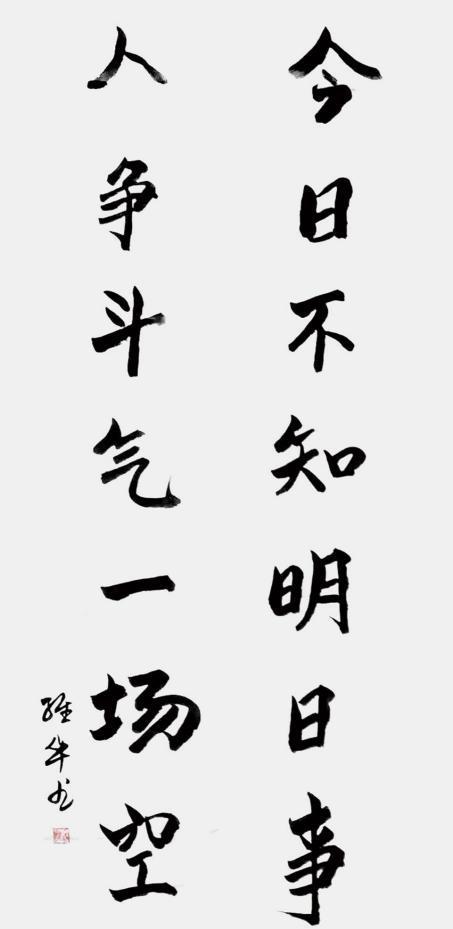 今日不知明日事
人争斗气一场空
维华书